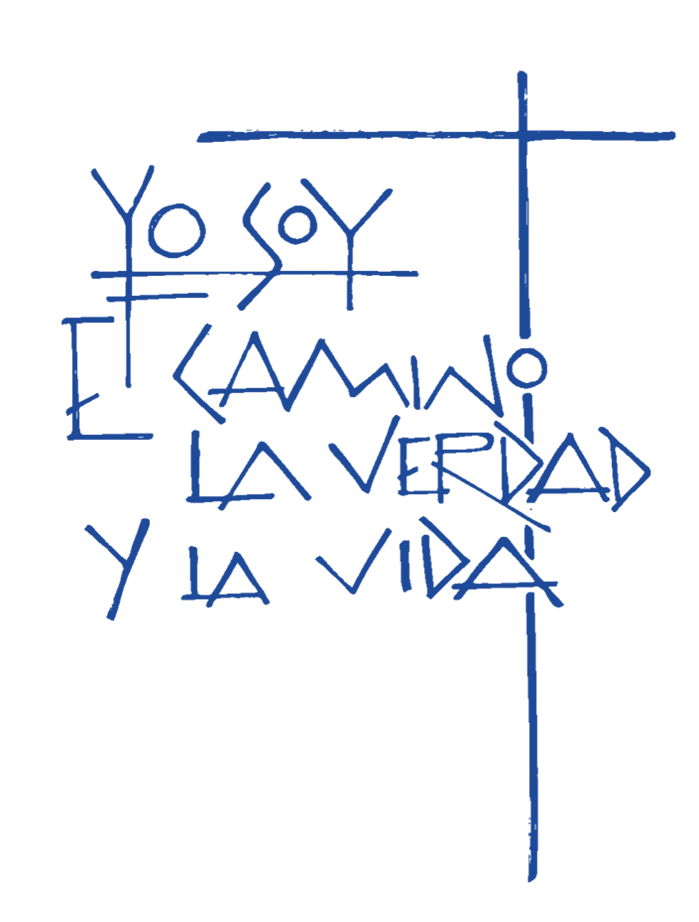 YO SOY
EL CAMINO
LA VERDAD
Y LA VIDA